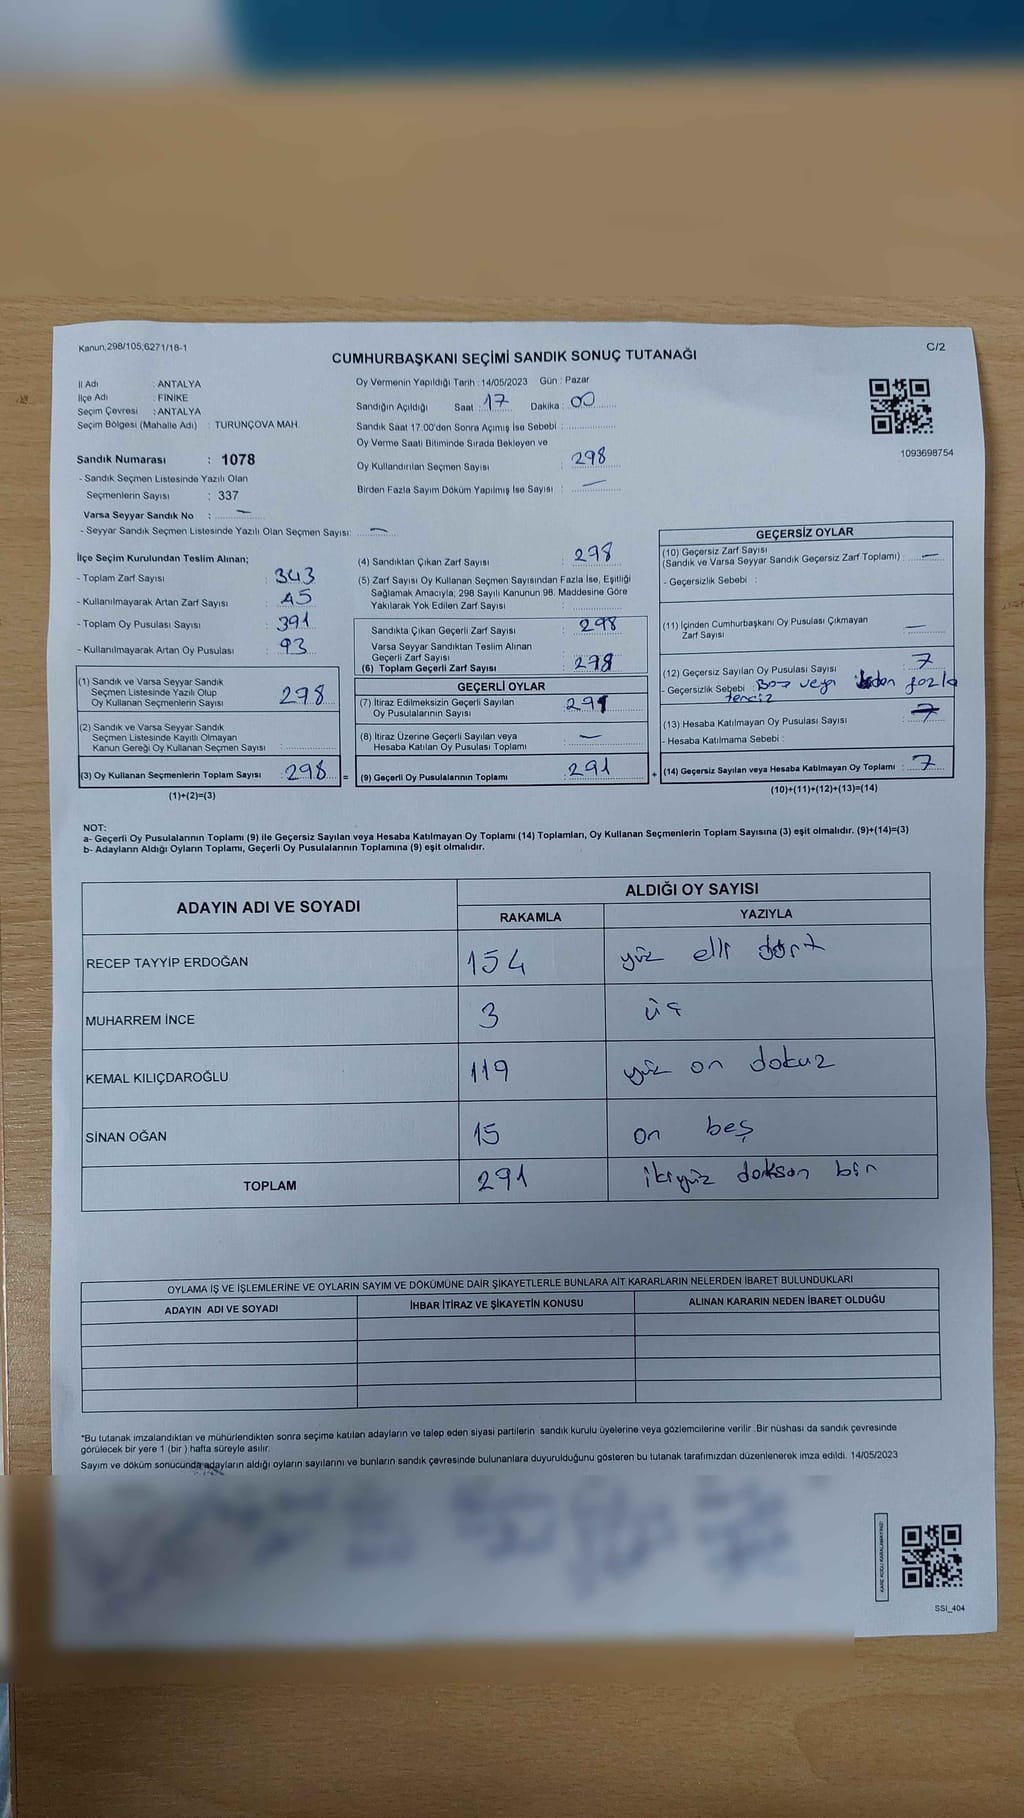 Kanun,298/105,6271/18-1
C/2
CUMHURBAŞKANI SEÇİMİ SANDIK SONUÇ TUTANAĞI
İl Adı : ANTALYA
İlçe Adı : FİNİKE
Seçim Çevresi : ANTALYA
Seçim Bölgesi (Mahalle Adı) : TURUNÇOVA MAH.
Sandık Numarası : 1078
- Sandık Seçmen Listesinde Yazılı Olan
Seçmenlerin Sayısı : 337
Varsa Seyyar Sandık No : —
- Seyyar Sandık Seçmen Listesinde Yazılı Olan Seçmen Sayısı: —
Oy Vermenin Yapıldığı Tarih : 14/05/2023 Gün : Pazar
Sandığın Açıldığı Saat : 17 Dakika : 00
Sandık Saat 17.00'den Sonra Açımış İse Sebebi :
Oy Verme Saati Bitiminde Sırada Bekleyen ve
Oy Kullandırılan Seçmen Sayısı : 298
Birden Fazla Sayım Döküm Yapılmış İse Sayısı : —
1093698754
İlçe Seçim Kurulundan Teslim Alınan;
- Toplam Zarf Sayısı : 343
- Kullanılmayarak Artan Zarf Sayısı : 45
- Toplam Oy Pusulası Sayısı : 391
- Kullanılmayarak Artan Oy Pusulası : 93
(1) Sandık ve Varsa Seyyar Sandık
Seçmen Listesinde Yazılı Olup
Oy Kullanan Seçmenlerin Sayısı : 298
(2) Sandık ve Varsa Seyyar Sandık
Seçmen Listesinde Kayıtlı Olmayan
Kanun Gereği Oy Kullanan Seçmen Sayısı :
(3) Oy Kullanan Seçmenlerin Toplam Sayısı : 298 =
(1)+(2)=(3)
(4) Sandıktan Çıkan Zarf Sayısı : 298
(5) Zarf Sayısı Oy Kullanan Seçmen Sayısından Fazla İse, Eşitliği
Sağlamak Amacıyla, 298 Sayılı Kanunun 98. Maddesine Göre
Yakılarak Yok Edilen Zarf Sayısı :
Sandıkta Çıkan Geçerli Zarf Sayısı : 298
Varsa Seyyar Sandıktan Teslim Alınan
Geçerli Zarf Sayısı :
(6) Toplam Geçerli Zarf Sayısı : 298
GEÇERLİ OYLAR
(7) İtiraz Edilmeksizin Geçerli Sayılan
Oy Pusulalarının Sayısı : 291
(8) İtiraz Üzerine Geçerli Sayılan veya
Hesaba Katılan Oy Pusulası Toplamı : —
(9) Geçerli Oy Pusulalarının Toplamı : 291 +
GEÇERSİZ OYLAR
(10) Geçersiz Zarf Sayısı
(Sandık ve Varsa Seyyar Sandık Geçersiz Zarf Toplamı) : —
- Geçersizlik Sebebi :
(11) İçinden Cumhurbaşkanı Oy Pusulası Çıkmayan
Zarf Sayısı : —
(12) Geçersiz Sayılan Oy Pusulası Sayısı : 7
- Geçersizlik Sebebi : Boş veya fazla
(13) Hesaba Katılmayan Oy Pusulası Sayısı :
- Hesaba Katılmama Sebebi :
(14) Geçersiz Sayılan veya Hesaba Katılmayan Oy Toplamı : 7
(10)+(11)+(12)+(13)=(14)
NOT:
a- Geçerli Oy Pusulalarının Toplamı (9) ile Geçersiz Sayılan veya Hesaba Katılmayan Oy Toplamı (14) Toplamları, Oy Kullanan Seçmenlerin Toplam Sayısına (3) eşit olmalıdır. (9)+(14)=(3)
b- Adayların Aldığı Oyların Toplamı, Geçerli Oy Pusulalarının Toplamına (9) eşit olmalıdır.
ADAYIN ADI VE SOYADI ALDIĞI OY SAYISI
RAKAMLA YAZIYLA
RECEP TAYYİP ERDOĞAN 154 yüz elli dört
MUHARREM İNCE 3 üç
KEMAL KILIÇDAROĞLU 119 yüz on dokuz
SİNAN OĞAN 15 on beş
TOPLAM 291 ikiyüz doksan bir
OYLAMA İŞ VE İŞLEMLERİNE VE OYLARIN SAYIM VE DÖKÜMÜNE DAİR ŞİKAYETLERLE BUNLARA AİT KARARLARIN NELERDEN İBARET BULUNDUKLARI
ADAYIN ADI VE SOYADI İHBAR İTİRAZ VE ŞİKAYETİN KONUSU ALINAN KARARIN NEDEN İBARET OLDUĞU
*Bu tutanak imzalandıktan ve mühürlendikten sonra seçime katılan adayların ve talep eden siyasi partilerin sandık kurulu üyelerine veya gözlemcilerine verilir. Bir nüshası da sandık çevresinde
görülecek bir yere 1 (bir ) hafta süreyle asılır.
Sayım ve döküm sonucunda adayların aldığı oyların sayılarını ve bunların sandık çevresinde bulunanlara duyurulduğunu gösteren bu tutanak tarafımızdan düzenlenerek imza edildi. 14/05/2023
KARE KODU KARALAMAYINIZ!
SSI_404